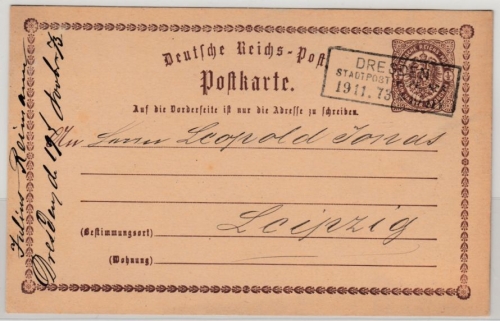 Deutsche Reichs-Post
Postkarte.
DRESDEN
STADTPOST
19 11. 73
Auf die Vorderseite ist nur die Adresse zu schreiben.
An Herrn Leopold Jonas
Leipzig
(Bestimmungsort)
(Wohnung)
Julius Reimann
Dresden d 19t Novbr 73.